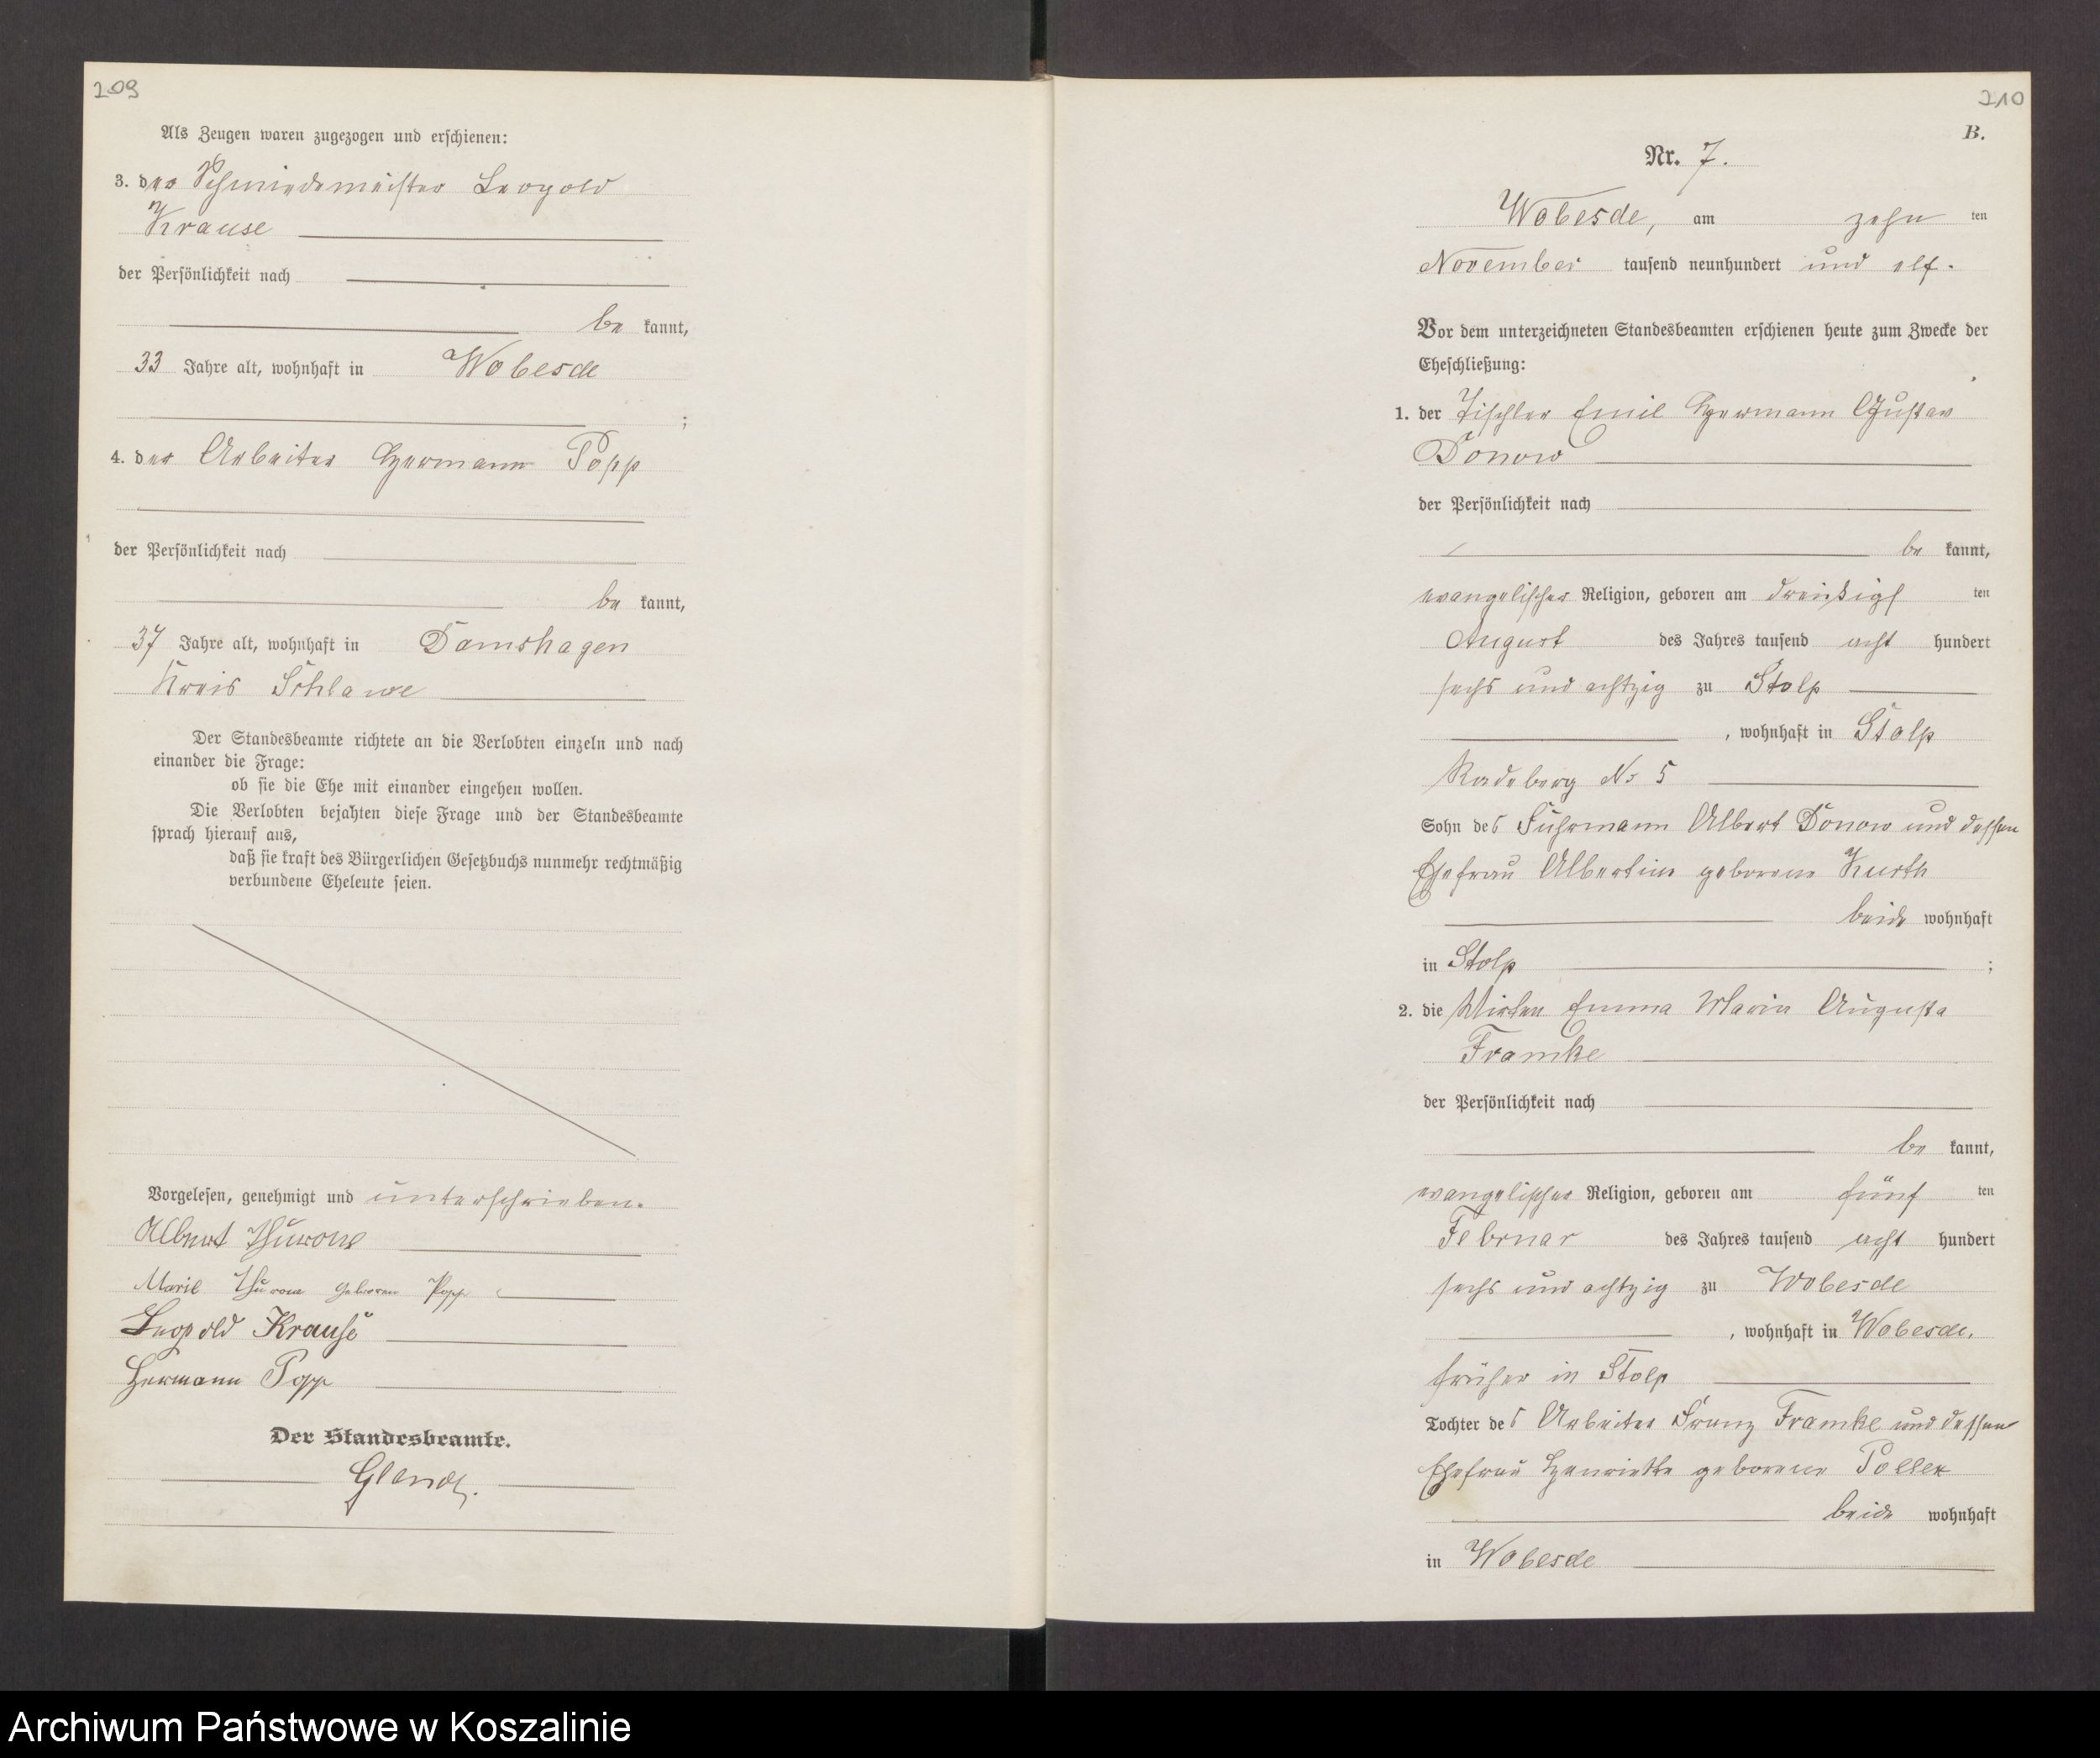 209
Als Zeugen waren zugezogen und erschienen:
3. der Schmiedemeister Leopold
Krause
der Persönlichkeit nach
be kannt,
33 Jahre alt, wohnhaft in Wobesde
;
4. der Arbeiter Hermann Popp
der Persönlichkeit nach
be kannt,
37 Jahre alt, wohnhaft in Damshagen
Kreis Schlawe
Der Standesbeamte richtete an die Verlobten einzeln und nach
einander die Frage:
ob sie die Ehe mit einander eingehen wollen.
Die Verlobten bejahten diese Frage und der Standesbeamte
sprach hierauf aus,
daß sie kraft des Bürgerlichen Gesetzbuchs nunmehr rechtmäßig
verbundene Eheleute seien.
Vorgelesen, genehmigt und unterschrieben.
Albert Thurow
Marie Thurow geboren Popp
Leopold Krause
Hermann Popp
Der Standesbeamte.
210
B.
Nr. 7.
Wobesde, am zehn ten
November tausend neunhundert und elf.
Vor dem unterzeichneten Standesbeamten erschienen heute zum Zwecke der
Eheschließung:
1. der Tischler Emil Hermann Gustav
Donow
der Persönlichkeit nach
be kannt,
evangelischer Religion, geboren am dreißigs ten
August des Jahres tausend acht hundert
sechs und achtzig zu Stolp
, wohnhaft in Stolp
Radeberg No 5
Sohn des Fuhrmann Albert Donow und dessen
Ehefrau Albertine geborene Kurth
beide wohnhaft
in Stolp ;
2. die Emma Marie Augusta
Framke
der Persönlichkeit nach
be kannt,
evangelischer Religion, geboren am fünf ten
Februar des Jahres tausend acht hundert
sechs und achtzig zu Wobesde
, wohnhaft in Wobesde,
früher in Stolp
Tochter des Arbeiter Franz Framke und dessen
Ehefrau Henriette geborene
beide wohnhaft
in Wobesde
Archiwum Państwowe w Koszalinie